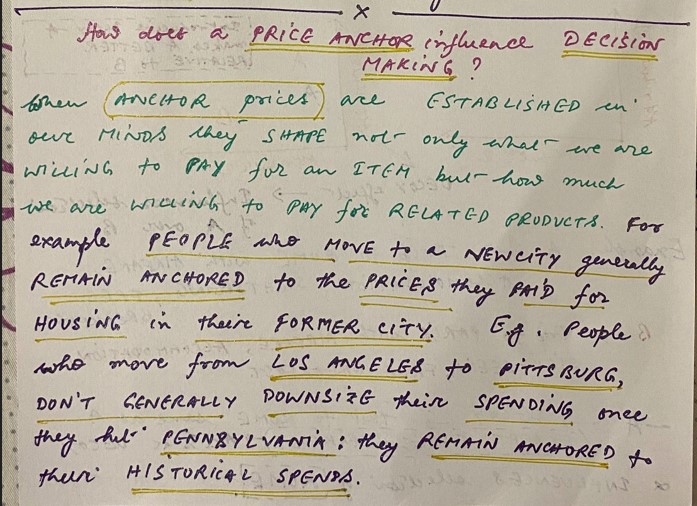 x
How does a PRICE ANCHOR influence DECISION
MAKING?
When ANCHOR prices are ESTABLISHED in
our MINDS they SHAPE not only what we are
WILLING to PAY for an ITEM but how much
we are WILLING to PAY for RELATED PRODUCTS. For
example PEOPLE who MOVE to a NEW CITY generally
REMAIN ANCHORED to the PRICES they PAID for
HOUSING in their FORMER CITY. E.g. People
who move from LOS ANGELES to PITTSBURG,
DON'T GENERALLY DOWNSIZE their SPENDING once
they hit PENNSYLVANIA: they REMAIN ANCHORED to
their HISTORICAL SPENDS.